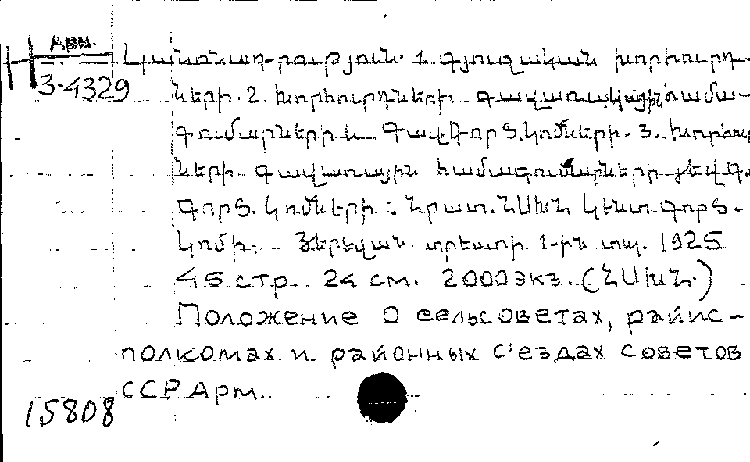 Арм.
3-4329
Կանոնադրություն. 1. գյուղական խորհուրդ-
ների. 2. խորհուրդների գավառակային համա-
գումարների և Գավգործ.կոմների. 3. խորհուրդ-
ների գավառային համագումարների յեվ Գ.
Գործ. կոմների: Հրատ. ՀՍԽՀ Կենտ. գործ.
կոմի. Յերեվան տրեստի 1-ին տպ. 1925
45 стр. 24 см. 2000 экз. (ՀՍԽՀ.)
Положение о сельсоветах, райис-
полкомах и районных с'ездах советов
ССРАрм.
15808